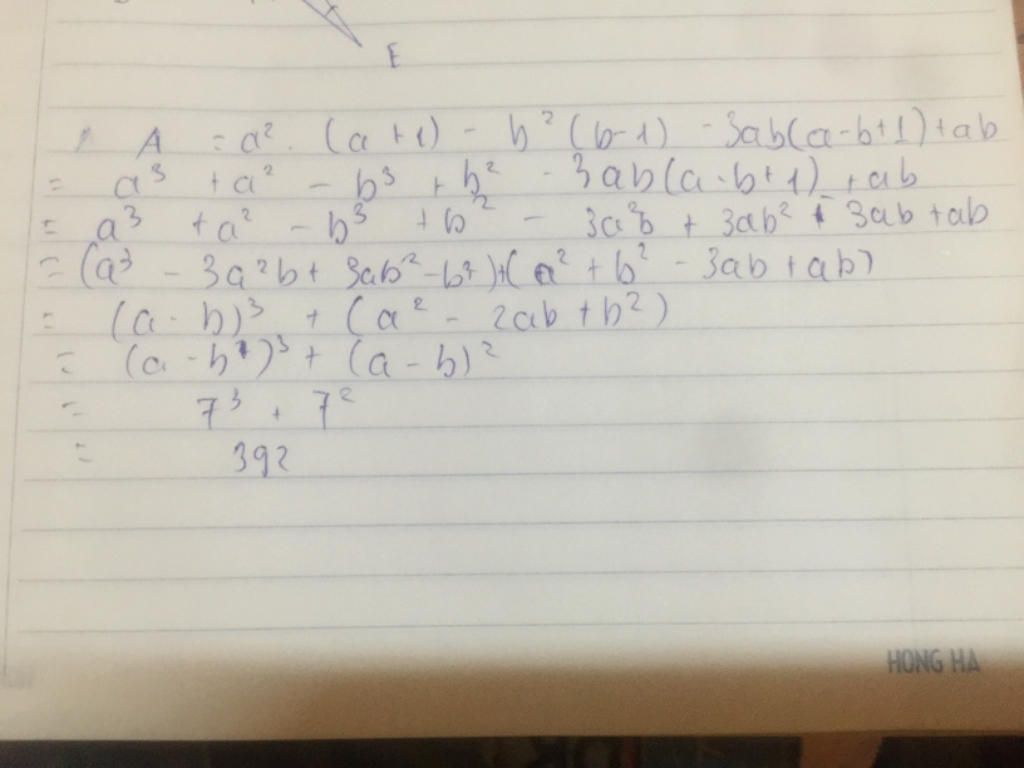 E
A = a². (a+1) - b² (b-1) - 3ab(a-b+1)+ab
= a³ + a² - b³ + b² - 3ab(a-b+1) + ab
= a³ + a² - b³ + b² - 3a²b + 3ab² - 3ab + ab
= (a³ - 3a²b + 3ab² - b³) + (a² + b² - 3ab + ab)
= (a - b)³ + (a² - 2ab + b²)
= (a - b)³ + (a - b)²
= 7³ + 7²
= 392
HONG HA